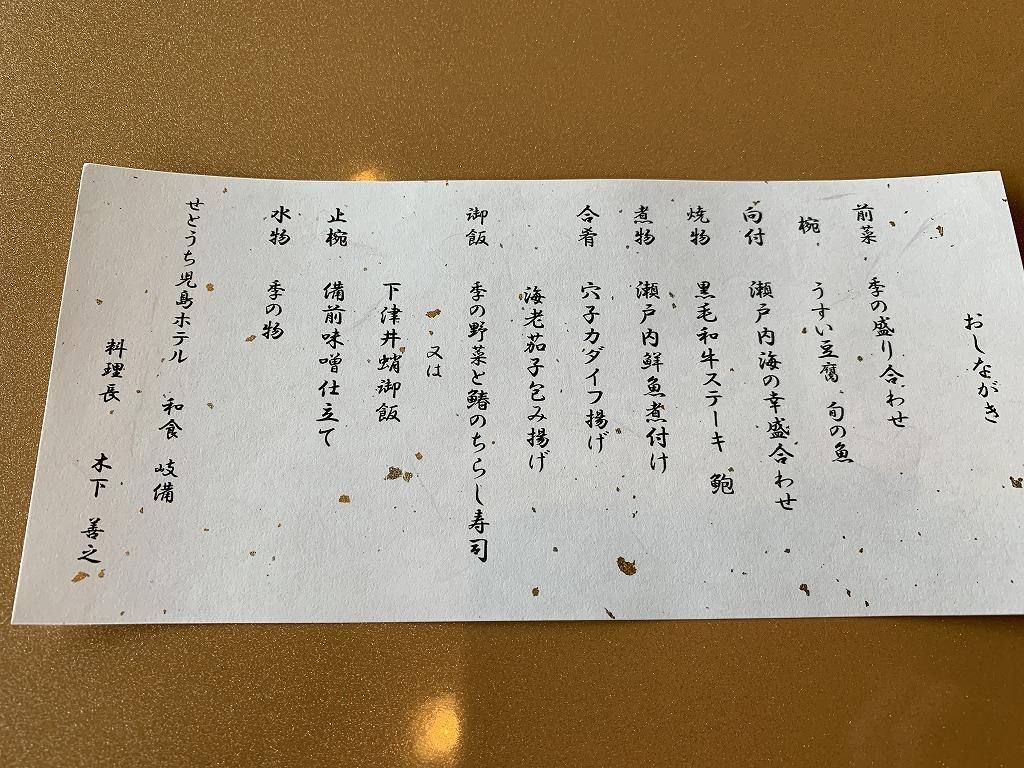 おしながき
前菜 季の盛り合わせ
椀 うすい豆腐 旬の魚
向付 瀬戸内海の幸盛合わせ
焼物 黒毛和牛ステーキ 鮑
煮物 瀬戸内鮮魚煮付け
合肴 穴子カダイフ揚げ
海老茄子包み揚げ
御飯 季の野菜と鰆のちらし寿司
又は
下津井蛸御飯
止椀 備前味噌仕立て
水物 季の物
せとうち児島ホテル 和食 岐備
料理長 木下 善之